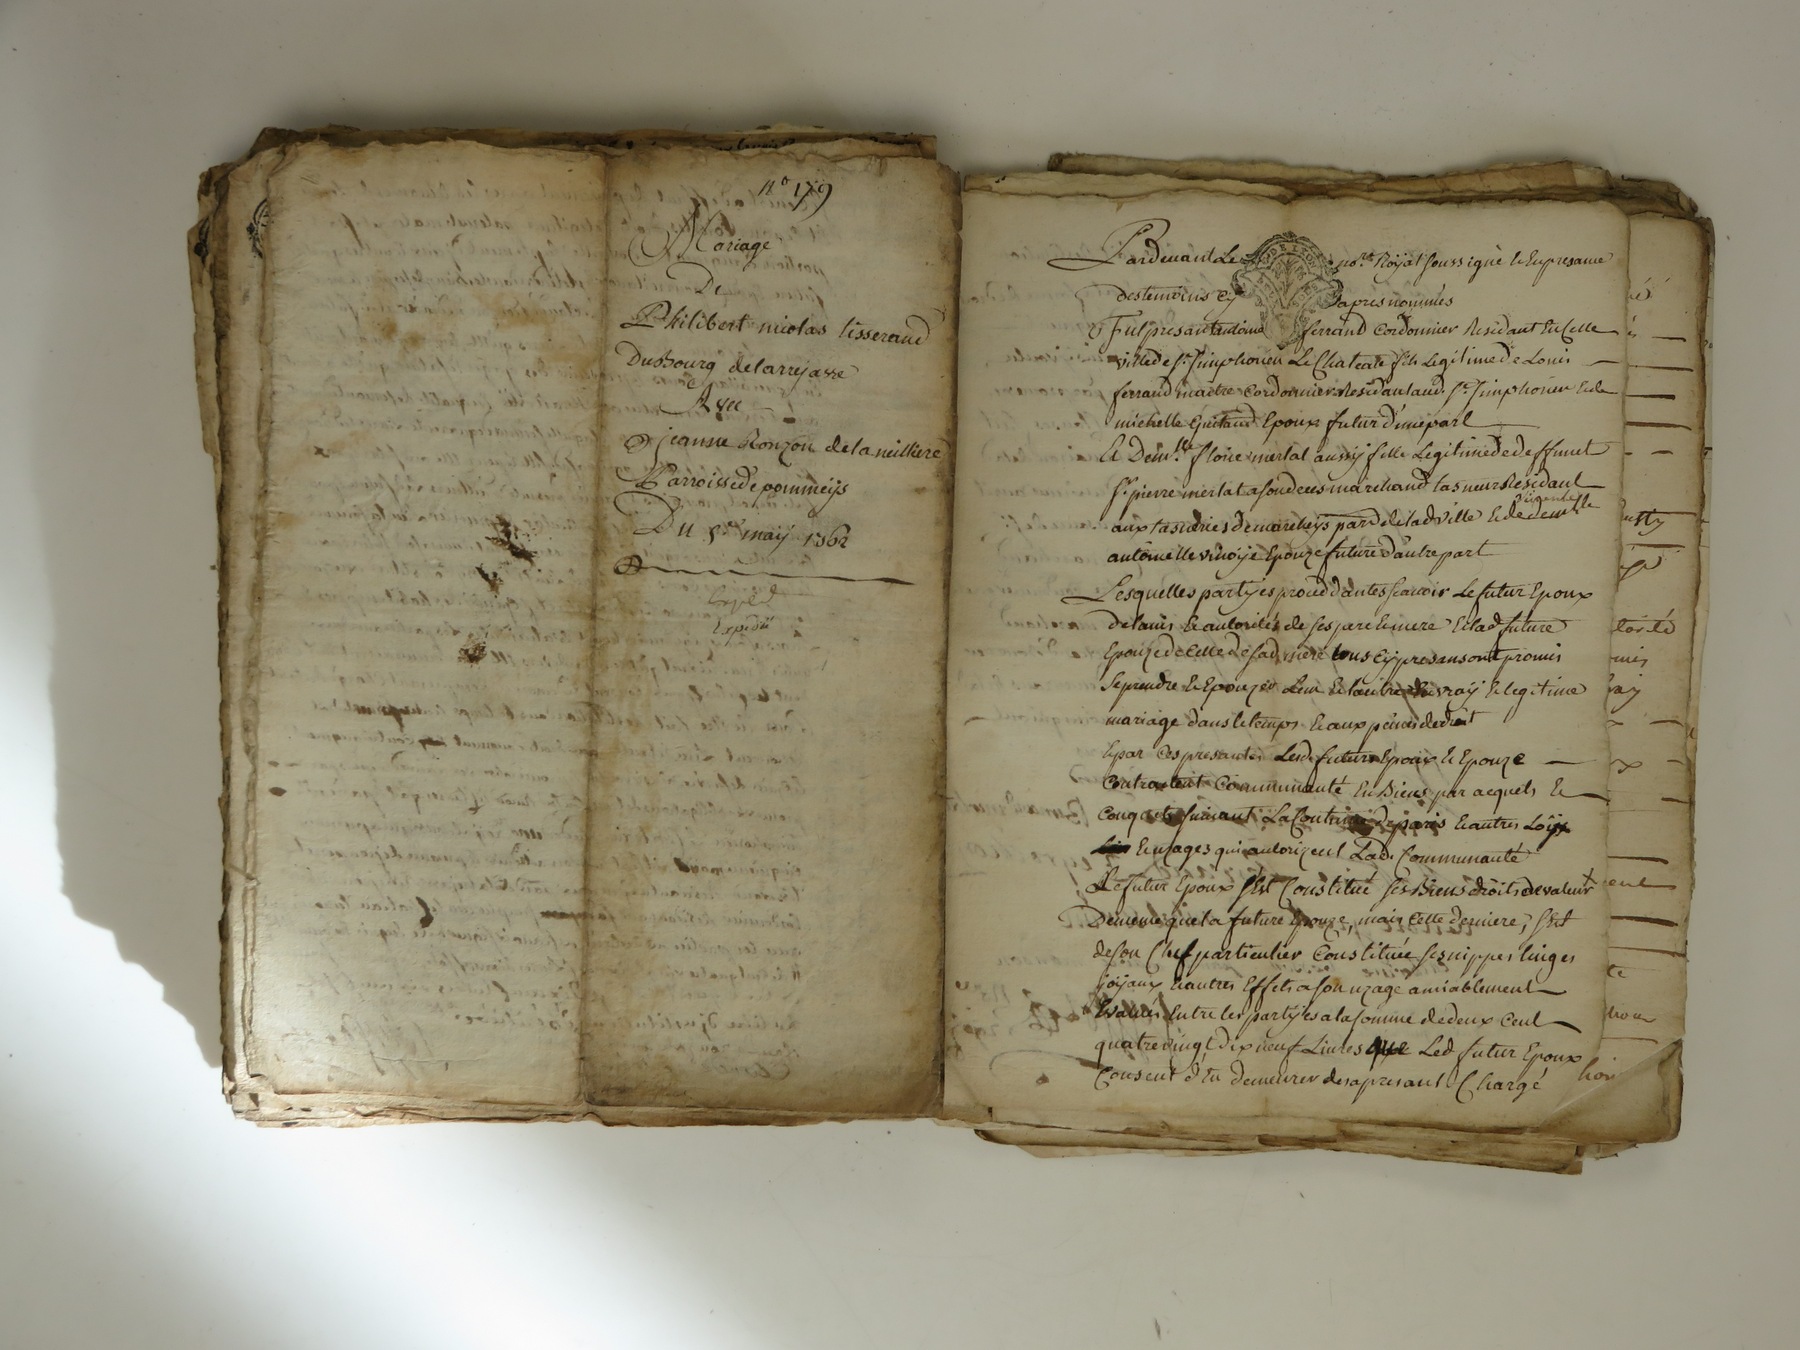 n° 179
Mariage
De
Philibert nicolas tisserand
Du Bourg de larrejasse
Avec
jeanne Ronzon de la neilliere
Parroisse de pommeÿs
Du 5e maÿ 1762
Expedié
Pardevant Le no.re Roÿal soussigné et En presance
des temoins cy apres nommés
Fut presant antoine ferrand Cordonnier Residant En Cette
ville de st. simphorien Le Chateau fils Legitime de Louis
ferrand maitre Cordonnier Residant aud. st. simphorien et de
michelle Epoux futur d'une part
Et Dem.lle merlat aussÿ fille Legitime de deffunt
sr. pierre merlat a son deces marchand tasneur Residant
aux tasneries de par de lad ville et de demlle
antoinette Epouze future d'autre part
Lesquelles partÿes procedd'antes scavoir Le futur Epoux
de lavis et autorités de ses pere et mere et lad future
Epouze de Celle de sad. mere tous Cÿ presans ont promis
se prendre et Epouzer Lun et lautre en vraÿ et legitime
mariage dans le temps et aux peines de droit
Et par Ces presantes Lesd. futurs Epoux et Epouze
Contractent Communauté En Biens par acquets et
Conquets suivant La Coutume de paris et autres Loÿx
et uzages qui autorizent Lad. Communauté
Le futur Epoux s'est Constitué ses Biens droits de valeur
De meme que la future Epouze, mais Cette derniere, s'est
de son Chef particulier Constituée ses nippes linges
joÿaux et autres Effets a son uzage amiablement
Evalués Entre les partÿes a la somme de deux Cent
quatrevingt dix neuf Livres que Led futur Epoux
Consent d'en demeurer des apresant Chargé